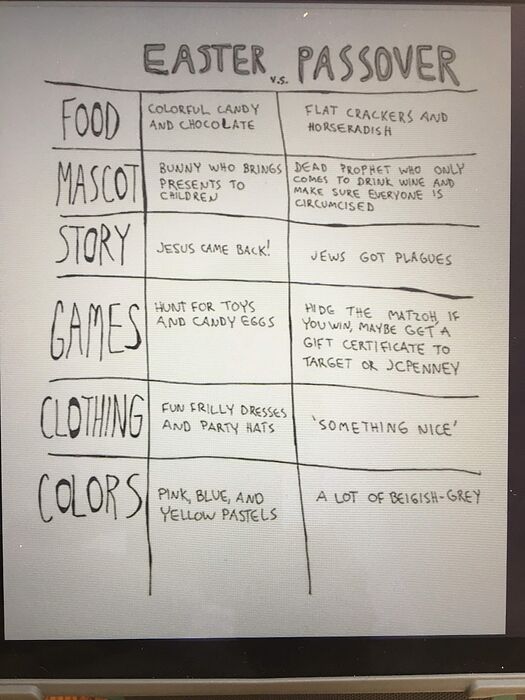 EASTER v.s. PASSOVER
FOOD
COLORFUL CANDY
AND CHOCOLATE
FLAT CRACKERS AND
HORSERADISH
MASCOT
BUNNY WHO BRINGS
PRESENTS TO
CHILDREN
DEAD PROPHET WHO ONLY
COMES TO DRINK WINE AND
MAKE SURE EVERYONE IS
CIRCUMCISED
STORY
JESUS CAME BACK!
JEWS GOT PLAGUES
GAMES
HUNT FOR TOYS
AND CANDY EGGS
HIDE THE MATZOH, IF
YOU WIN, MAYBE GET A
GIFT CERTIFICATE TO
TARGET OR JCPENNEY
CLOTHING
FUN FRILLY DRESSES
AND PARTY HATS
'SOMETHING NICE'
COLORS
PINK, BLUE, AND
YELLOW PASTELS
A LOT OF BEIGISH-GREY